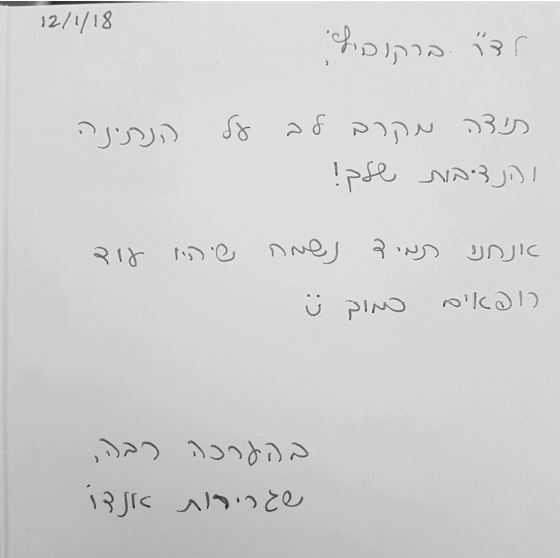 12/1/18
לד״ר ברקוביץ׳,
תודה מקרב לב על הנתינה
והנדיבות שלך!
אנחנו תמיד נשמח שיהיו עוד
רופאים כמוך ü
בהערכה רבה,
שגרירות אנדו